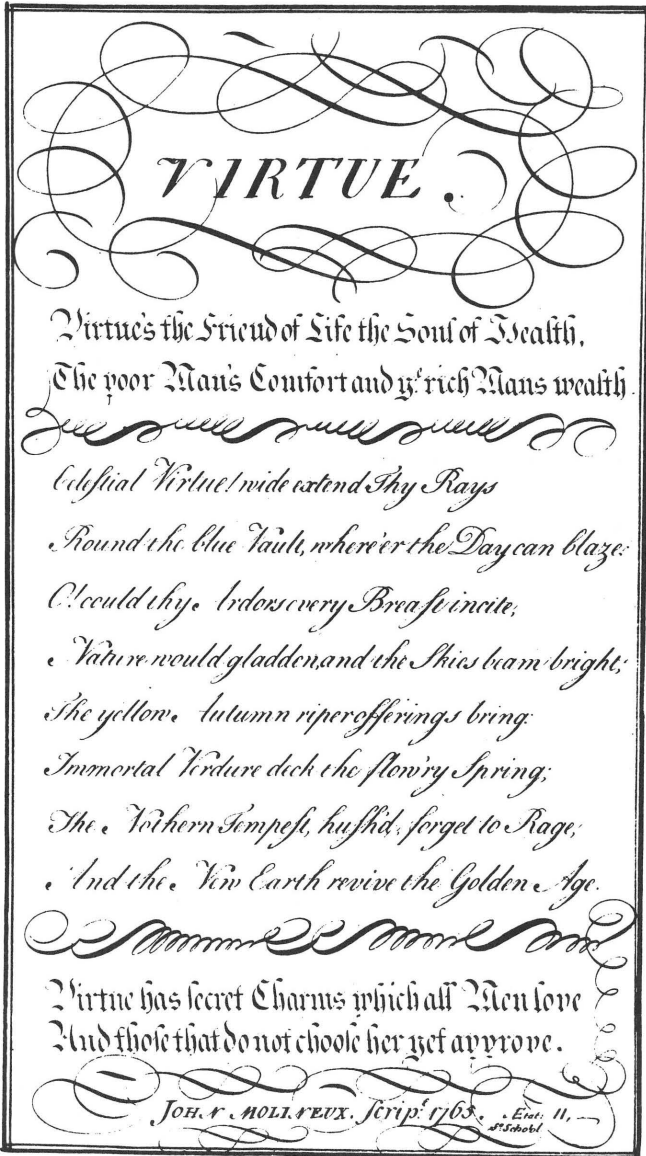 VIRTUE.
Virtue's the Friend of Life the Soul of Health,
The poor Man's Comfort and yᵉ rich Mans wealth.
Celestial Virtue! wide extend Thy Rays
Round the blue Vault, where'er the Day can blaze:
O! could thy Ardors every Breast incite,
Nature would gladden, and the Skies beam bright;
The yellow Autumn riper offerings bring:
Immortal Verdure deck the flow'ry Spring;
The Nothern Tempest, hush'd, forget to Rage;
And the New Earth revive the Golden Age.
Virtue has secret Charms which all Men love
And those that do not choose her yet approve.
JOHN MOLINEUX. Scripᵗ 1765. Etat: 11,
Sᵗ School